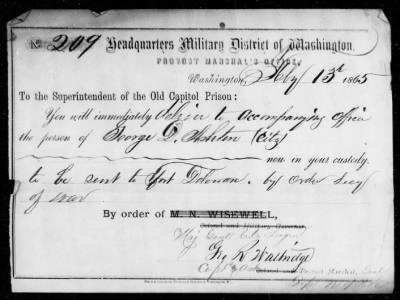 No. 209 Headquarters Military District of Washington,
PROVOST MARSHAL'S OFFICE,
Washington, Feby 13th 1865
To the Superintendent of the Old Capitol Prison:
You will immediately deliver to accompanying officer
the person of George D. Ashton (City)
now in your custody.
to be sent to Fort Delaware. by order Secy
of War
By order of M. N. WISEWELL,
Colonel and Military Governor,
Geo R Walbridge
Capt